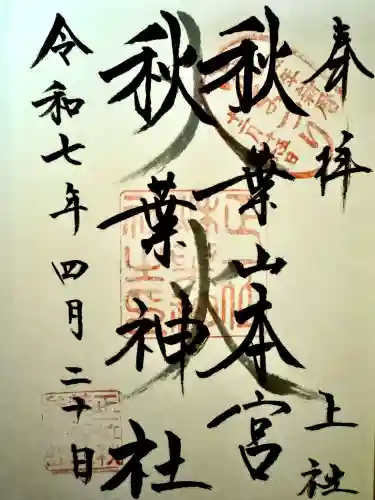 奉拝　上社
秋葉山本宮
秋葉神社
令和七年四月二十日
火
火